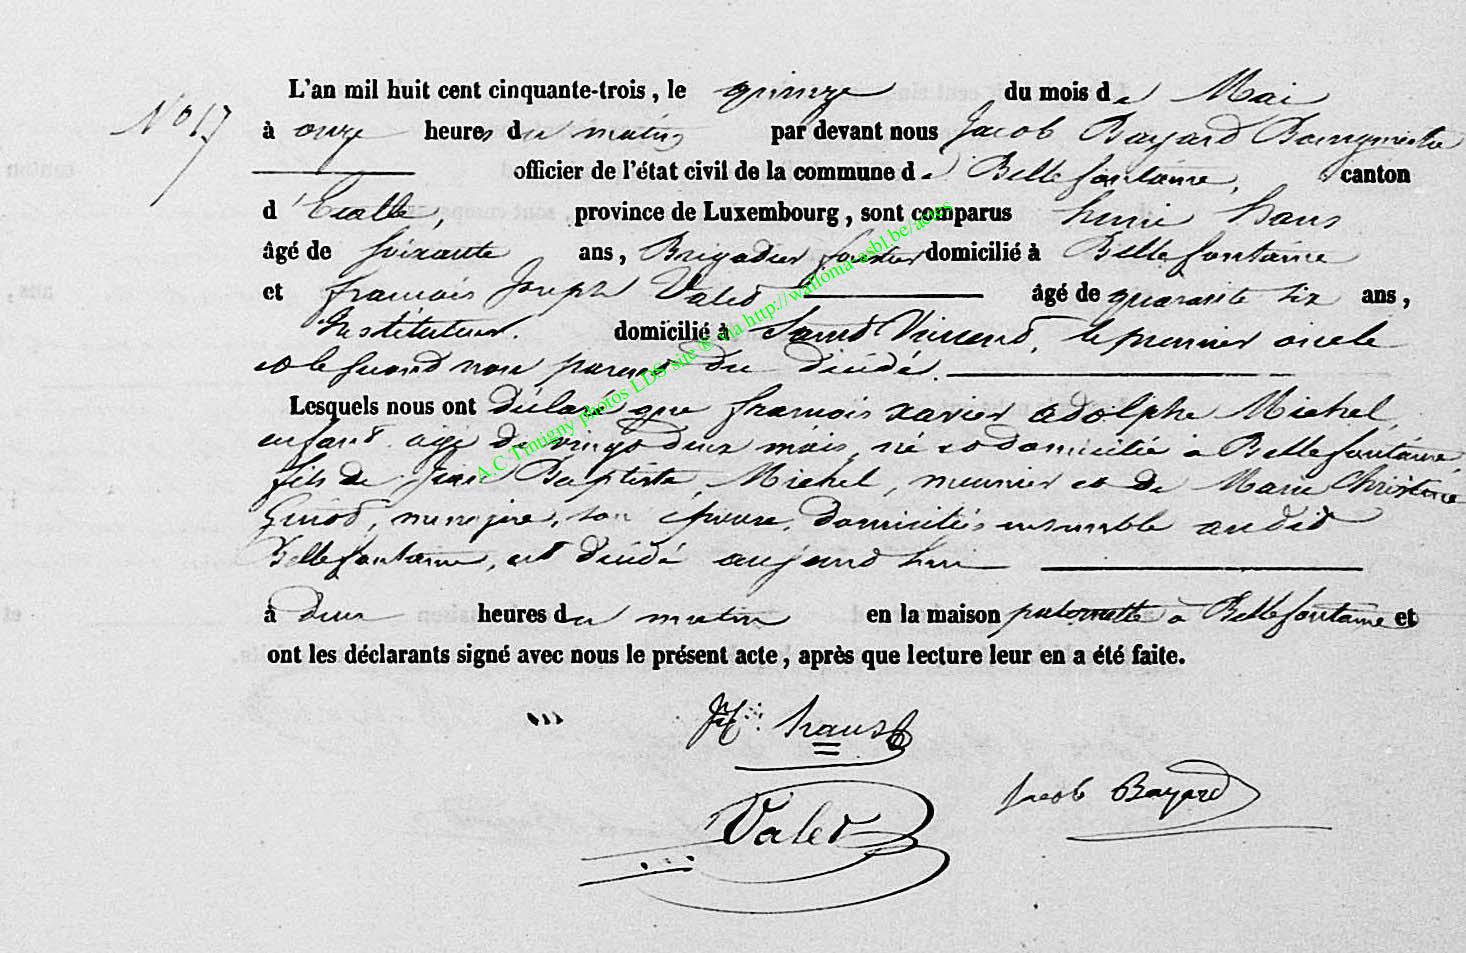 N° 17
L'an mil huit cent cinquante-trois, le quinze du mois de Mai
à onze heures du matin par devant nous Jacob Bayard Bourgmestre
officier de l'état civil de la commune de Bellefontaine, canton
d'Etalle, province de Luxembourg, sont comparus henri haus
âgé de soixante ans, Brigadier forestier domicilié à Bellefontaine
et francois Joseph Valet âgé de quarante six ans,
Instituteur. domicilié à Saint Vincent, le premier oncle
et le second non parent du décédé.
Lesquels nous ont déclaré que francois xavier adolphe Michel,
enfant agé de vingt deux mois, né et domicilié à Bellefontaine,
fils de Jean Baptiste Michel, meunier et de Marie Christine
menagere, son épouse, domiciliés ensemble audit
Bellefontaine, est décédé aujourd'hui
à deux heures du matin en la maison paternelle à Bellefontaine et
ont les déclarants signé avec nous le présent acte, après que lecture leur en a été faite.
haus
Jacob Bayard
Valet
A.C Tintigny photos LDS site © via http://wallonia-asbl.be/actes